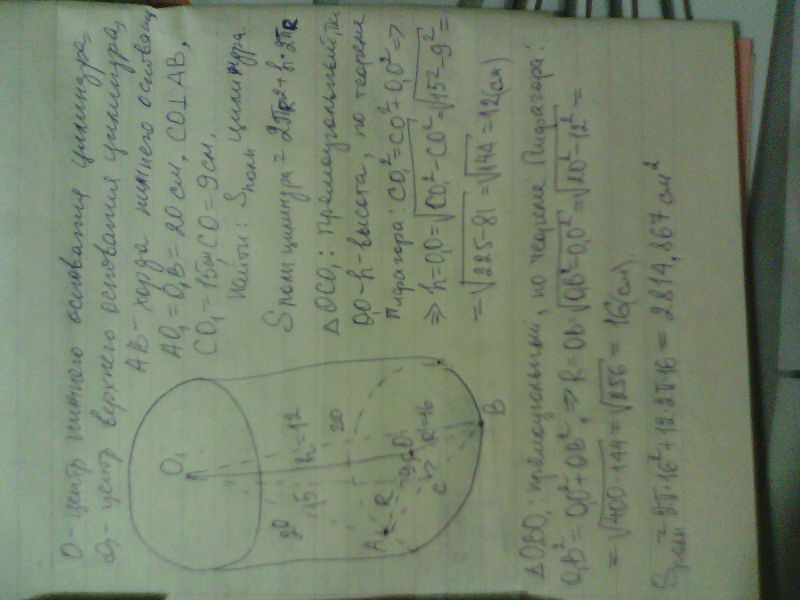 O - центр нижнего основания цилиндра,
O₁ - центр верхнего основания цилиндра,
AB - хорда нижнего основания
AO₁ = O₁B = 20 см, CO ⊥ AB,
CO₁ = 15 см, CO = 9 см.
Найти: Sполн цилиндра.
Sполн цилиндра = 2πR² + h · 2πR
△OCO₁: прямоугольный,
O₁O - h - высота, по теореме
Пифагора: CO₁² = CO² + O₁O² ⇒
⇒ h = O₁O = √CO₁² - CO² = √15² - 9² =
= √225 - 81 = √144 = 12 (см)
O₁
20
15
h = 12
20
A
R
9см
O
C
R = 16
B
△OBO₁: прямоугольный, по теореме Пифагора:
O₁B² = O₁O² + OB², ⇒ R = OB = √O₁B² - O₁O² = √20² - 12² =
= √400 - 144 = √256 = 16 (см).
Sполн = 2π · 16² + 12 · 2π · 16 = 2814,867 см²